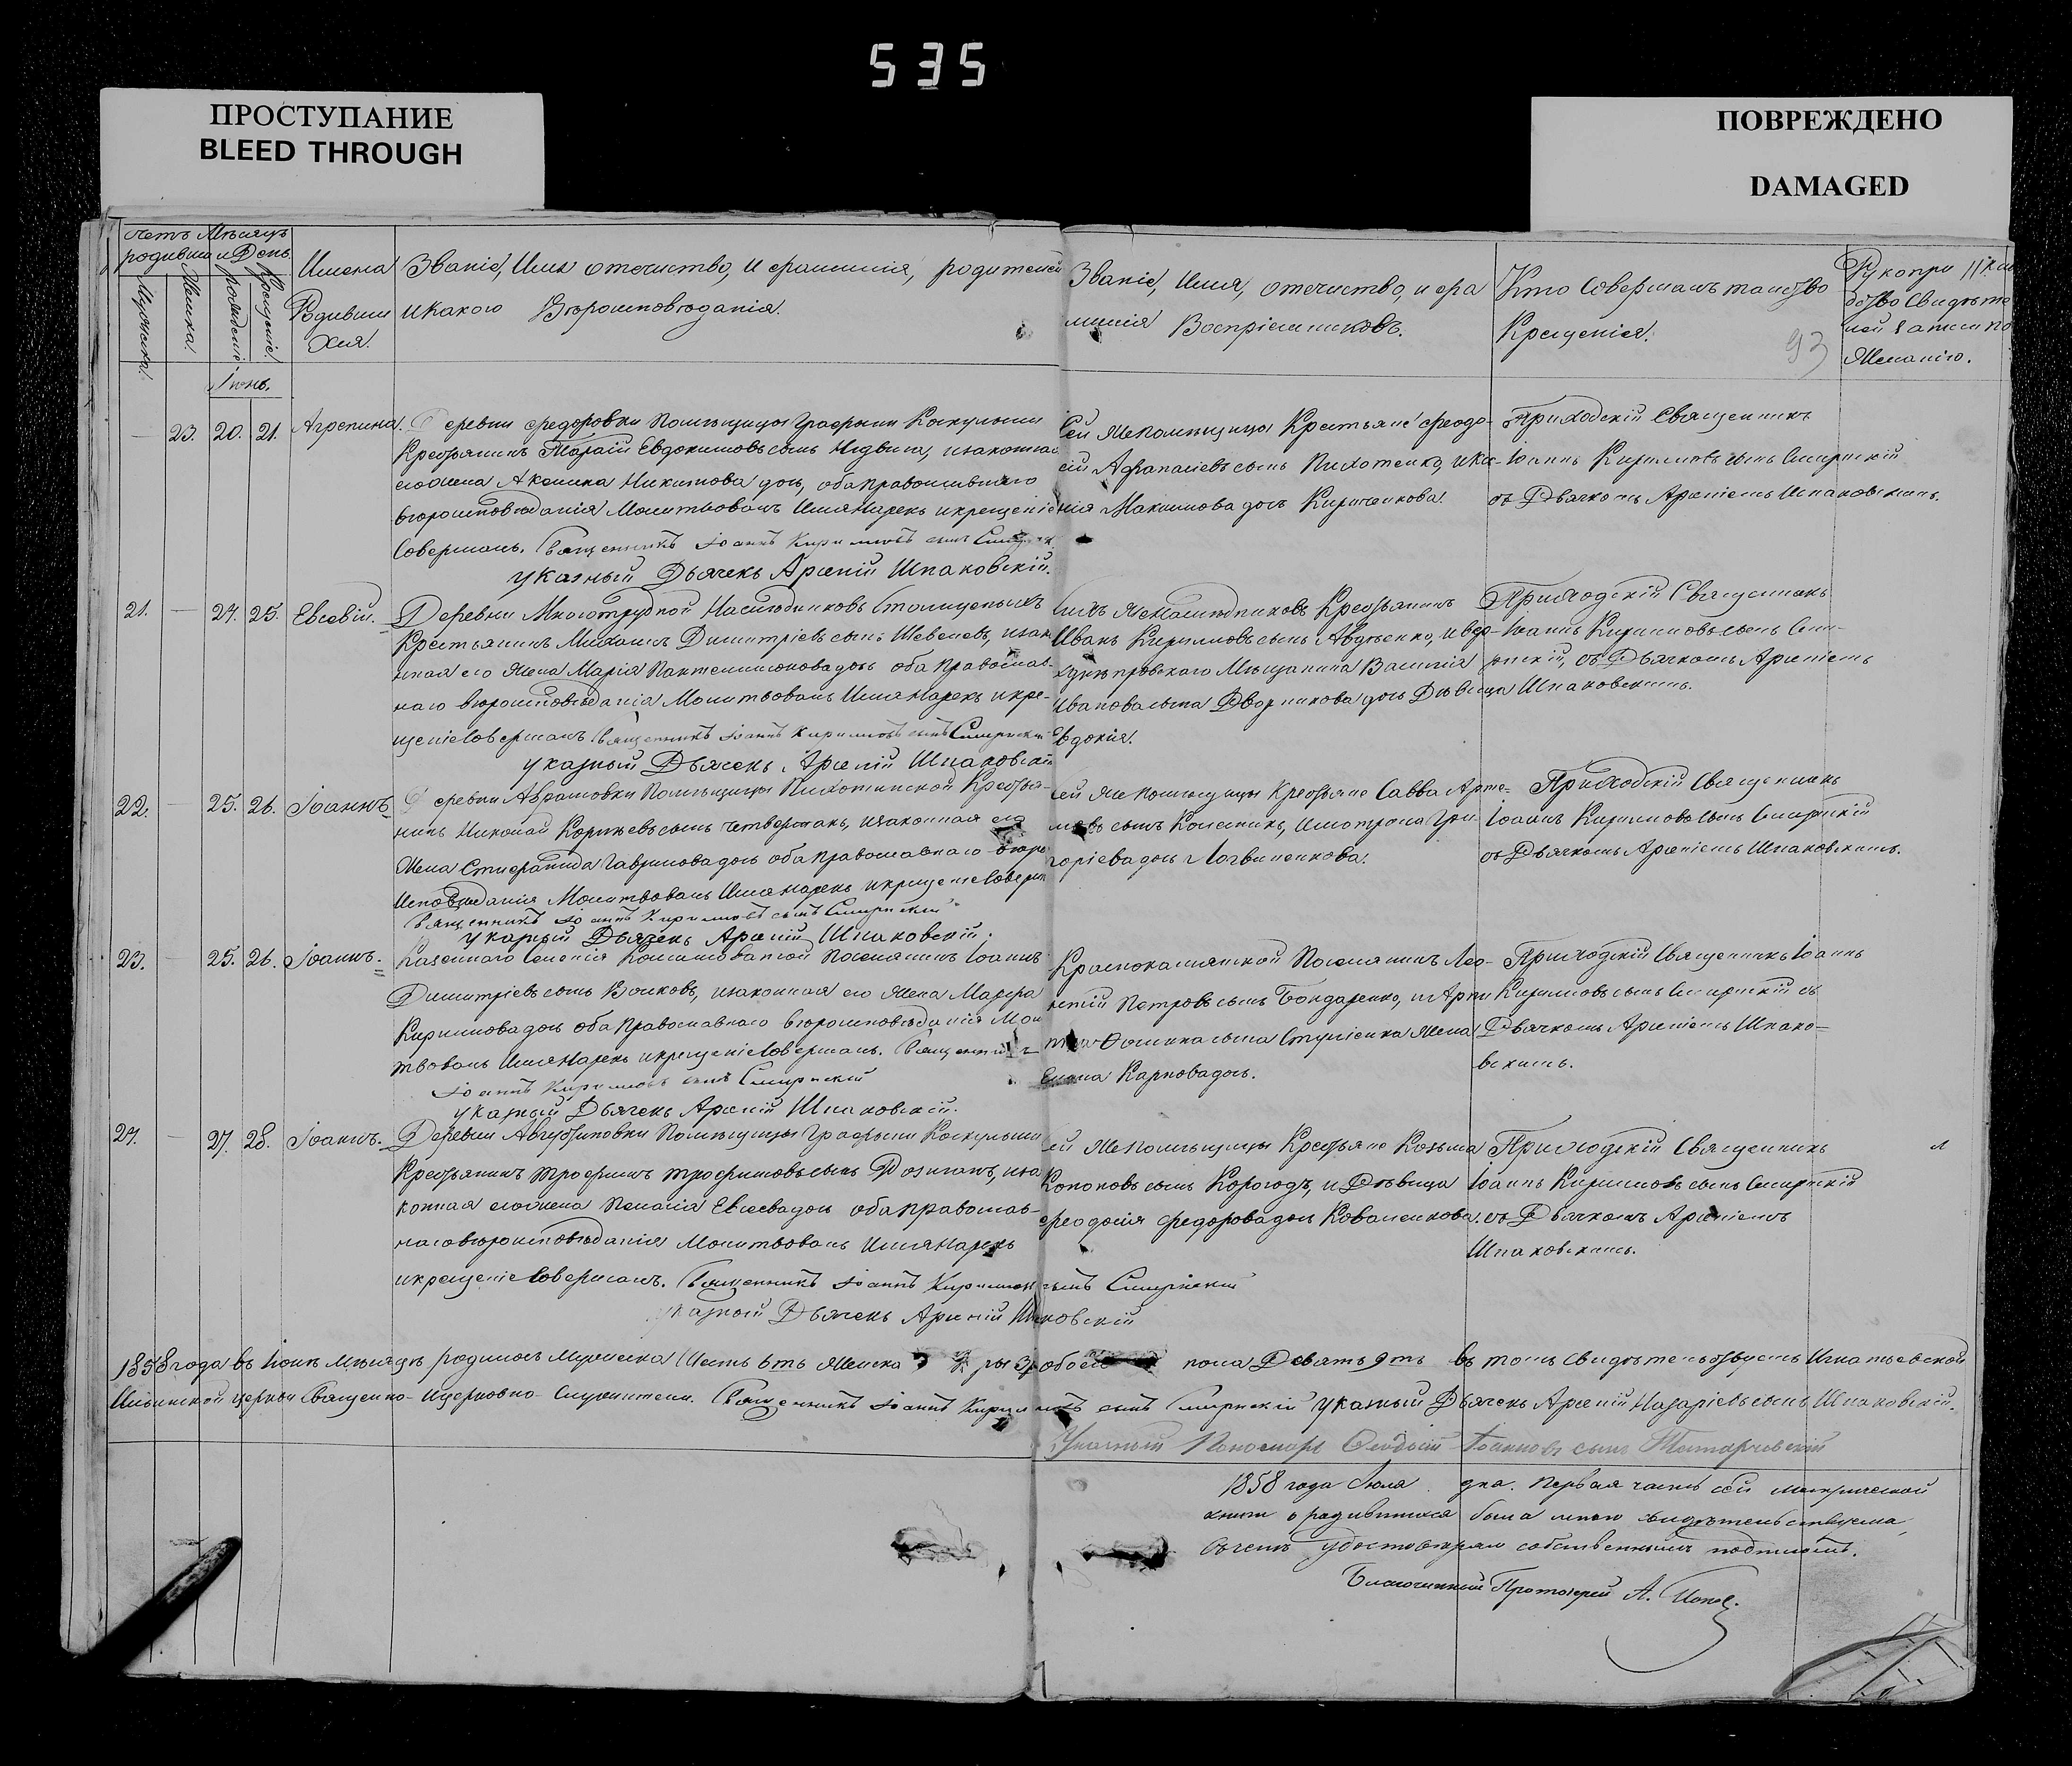 535
ПРОСТУПАНИЕ
BLEED THROUGH
ПОВРЕЖДЕНО
DAMAGED
Счетъ родивш
Мѣсяцъ и День
Мужеска.
Женска.
рожденіе
Крещеніе.
Имена
Родивши
хся.
Званіе, Имя отечиство, и фамилія, родителей
и какого Вѣроисповѣданія.
Званіе, Имя, отечиство, и фа
милія Воспріемниковъ.
Кто Совершалъ таинство
Крещенія.
93
Рукопри
Свидѣте
Желанію.
Іюнь.
23. 20. 21. Агрепина.
Деревни Федоровки Помѣщицы Графыни
Крестьянинъ Евдокимовъ сынъ
его жена Никитова дочь, оба Православнаго
вѣроисповѣданія Молитвовалъ Имя Нарекъ и крещеніе
Совершалъ. Священникъ Іоаннъ Кириловъ сынъ
указный Дьячекъ Арсеній Шпаковскій.
Сей же Помѣщицы Крестьяне Феодо-
сій Афанасіевъ сынъ Пихотенко, и Ксе-
нія Максимова дочь Кириченкова.
Приходскій Священникъ
Іоаннъ Кириловъ сынъ
съ Дьячкомъ Арсеніемъ Шпаковскимъ.
21. — 24. 25. Евсевій.
Деревни Многотрудной Наслѣдниковъ
Крестьянинъ Михаилъ Димитріевъ сынъ Шевелевъ, и закон
ная его Жена Марія Пантелимонова дочь оба Православ-
наго вѣроисповѣданія Молитвовалъ Имя Нарекъ и кре-
щеніе Совершалъ Священникъ Іоаннъ Кириловъ сынъ
указный Дьячекъ Арсеній Шпаковскій
Сихъ же Наслѣдниковъ Крестьянинъ
Иванъ Кириловъ сынъ Авдѣенко, и вер-
хднѣпровскаго Мѣщанина Василія
Иванова сына Дворникова дочь Дѣвица
Евдокія.
Приходскій Священникъ
Іоаннъ Кириловъ сынъ
съ Дьячкомъ Арсеніемъ
Шпаковскимъ.
22. — 25. 26. Іоаннъ
Деревни Абрамовки Помѣщицы Пихотинской Крестья-
нинъ Николай Корнѣевъ сынъ Четвертакъ, и законная его
Жена Стефанида Гаврилова дочь оба Православнаго вѣро
исповѣданія Молитвовалъ Имя Нарекъ и крещеніе Соверш
Священникъ Іоаннъ Кириловъ сынъ
указный Дьячекъ Арсеній Шпаковскій.
Сей же Помѣщицы Крестьяне Савва Арте-
мовъ сынъ и Мотрона Гри-
горіева дочь Логвиненкова.
Приходскій Священникъ
Іоаннъ Кириловъ сынъ
съ Дьячкомъ Арсеніемъ Шпаковскимъ.
23. — 25. 26. Іоаннъ.
Казеннаго Селенія Поселянинъ Іоаннъ
Димитріевъ сынъ Волковъ, и законная его Жена Марфа
Кирилова дочь оба Православнаго вѣроисповѣданія Мол
твовалъ Имя Нарекъ и крещеніе Совершалъ. Священникъ
Іоаннъ Кириловъ сынъ
указный Дьячекъ Арсеній Шпаковскій.
Поселянинъ Лео-
нтій Петровъ сынъ Бондаренко, и
Фомина сына жена
Елена Карпова дочь.
Приходскій Священникъ Іоаннъ
Кириловъ сынъ съ
Дьячкомъ Арсеніемъ Шпако-
вскимъ.
24. — 27. 28. Іоаннъ.
Деревни Августиновки Помѣщицы Графыни
Крестьянинъ Трофимъ Трофимовъ сынъ и за
конная его жена Пелагія Евсеева дочь оба Православ-
наго вѣроисповѣданія Молитвовалъ Имя Нарекъ
и крещеніе Совершалъ. Священникъ Іоаннъ Кириловъ сынъ
указный Дьячекъ Арсеній Шпаковскій
Сей же Помѣщицы Крестьяне Козьма
Кононовъ сынъ Корогодъ, и Дѣвица
Феодосія Федорова дочь Коваленкова.
Приходскій Священникъ
Іоаннъ Кириловъ сынъ
съ Дьячкомъ Арсеніемъ
Шпаковскимъ.
1858 года въ Іюнѣ мѣсяцѣ родилось мужеска Шесть 6ть Женска три 3 обоего пола Девять 9ть въ томъ свидѣтельствуемъ Игнатьевской
Ильинской церкви Священно-и церковно-Служители. Священникъ Іоаннъ Кириловъ сынъ указный Дьячекъ Арсеній Назаріевъ сынъ Шпаковскій.
Указный Пономарь Феодосій Іоанновъ сынъ
1858 года Іюля дна. Первая часть сей метрической
книги о родившихся была мною свидѣтельствуема,
въ чемъ удостовѣряю собственнымъ подписомъ.
Благочинный Протоіерей А. Поповъ.